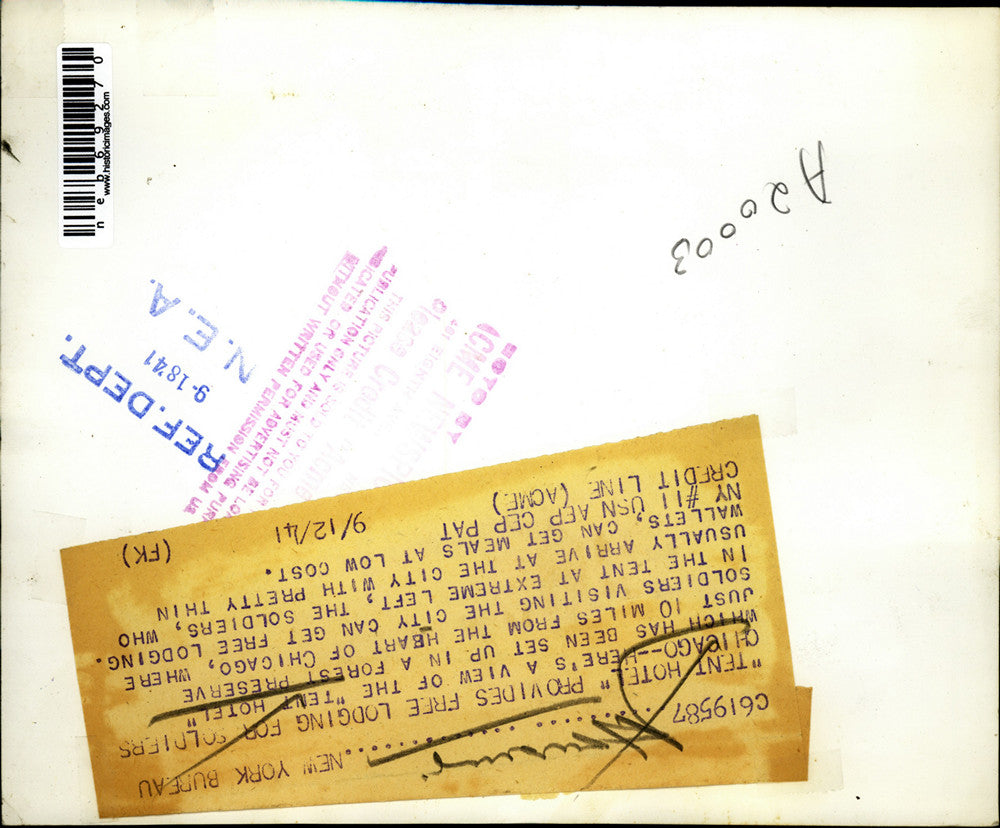 neb69270
www.historicimages.com
A20003
REF. DEPT.
9-18 41
N.E.A.
PHOTO BY
ACME
Please Credit
THIS PICTURE IS SOLD TO YOU FOR
PUBLICATION ONLY AND MUST NOT BE
OR USED FOR ADVERTISING
WITHOUT WRITTEN PERMISSION FROM US
C619587..........NEW YORK BUREAU
"TENT HOTEL" PROVIDES FREE LODGING FOR SOLDIERS
CHICAGO--HERE'S A VIEW OF THE "TENT HOTEL"
WHICH HAS BEEN SET UP IN A FOREST PRESERVE
JUST 10 MILES FROM THE HEART OF CHICAGO, WHERE
SOLDIERS VISITING THE CITY CAN GET FREE LODGING.
IN THE TENT AT EXTREME LEFT, THE SOLDIERS, WHO
USUALLY ARRIVE AT THE CITY WITH PRETTY THIN
WALLETS, CAN GET MEALS AT LOW COST.
NY #11 USN AEP CEP PAT
CREDIT LINE (ACME) 9/12/41 (FK)